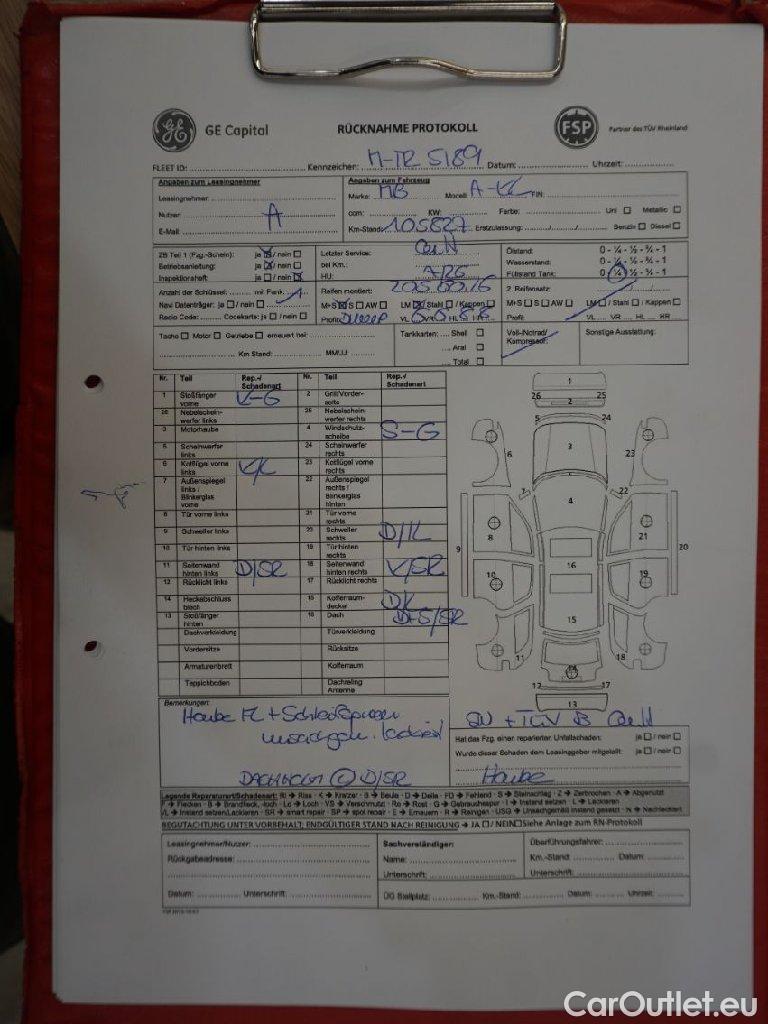 GE Capital RÜCKNAHME PROTOKOLL FSP Partner des TÜV Rheinland
FLEET ID: Kennzeichen: M-TR 5189 Datum: Uhrzeit:
Angaben zum Leasingnehmer
Leasingnehmer:
Nutzer: A
E-Mail:
Angaben zum Fahrzeug
Marke: MB Modell A-KL FIN:
ccm: KW: Farbe: Uni Metallic
Km-Stand: 105827 Erstzulassung: Benzin Diesel
ZB Teil 1 (Fzg.-Schein): ja / nein
Betriebsanleitung: ja / nein
Inspektionsheft: ja / nein
Letzter Service:
bei Km.:
HU:
Ölstand: 0 - ¼ - ½ - ¾ - 1
Wasserstand: 0 - ¼ - ½ - ¾ - 1
Füllstand Tank: 0 - ¼ - ½ - ¾ - 1
Anzahl der Schlüssel: mit Funk
Navi Datenträger: ja / nein
Radio Code: Codekarte: ja / nein
Reifen montiert: 205 R16
M+S S AW LM / Stahl / Kappen
Profil: VL VR HL HR
2 Reifensatz
M+S S AW LM / Stahl / Kappen
Profil: VL VR HL HR
Tacho Motor Getriebe erneuert bei:
Km Stand: MM/JJ
Tankkarten: Shell
Aral
Total
Voll-Notrad/
Kompressor:
Sonstige Ausstattung:
Nr. Teil Rep.-/ Schadenart Nr. Teil Rep.-/ Schadenart
1 Stoßfänger vorne K-G 2 Grill/Vorder-seite
26 Nebelschein-werfer links 25 Nebelschein-werfer rechts
3 Motorhaube 4 Windschutz-scheibe S-G
5 Scheinwerfer links 24 Scheinwerfer rechts
6 Kotflügel vorne links K/L 23 Kotflügel vorne rechts
7 Außenspiegel links / Blinkerglas vorne 22 Außenspiegel rechts / Blinkerglas hinten
8 Tür vorne links 21 Tür vorne rechts
9 Schweller links 20 Schweller rechts D/IL
10 Tür hinten links 19 Tür hinten rechts
11 Seitenwand hinten links D/SR 18 Seitenwand hinten rechts K/SR
12 Rücklicht links 17 Rücklicht rechts
14 Heckabschluss blech 15 Kofferraum-deckel D/L
13 Stoßfänger hinten 16 Dach D+S/SR
Dachverkleidung Türverkleidung
Vordersitze Rücksitze
Armaturenbrett Kofferraum
Teppichboden Dachreling Antenne
1
26 25
2
5 24
3
6 23
7 22
4
8 21
9 20
16
10 19
15
11 18
14
12 17
13
Bemerkungen:
Haube FL + Schleifspuren
unsachgem. lackiert
D/SR
Hat das Fzg. einen reparierten Unfallschaden: ja / nein
Wurde dieser Schaden dem Leasinggeber mitgeteilt: ja / nein
Haube
Legende Reparaturart/Schadenart: RI → Riss - K → Kratzer - B → Beule - D → Delle - FD → Fehlend - S → Steinschlag - Z → Zerbrochen - A → Abgenutzt
F → Flecken - B → Brandfleck, -loch - Lo → Loch - VS → Verschmutzt - Ro → Rost - G → Gebrauchsspur - I → Instand setzen - L → Lackieren
I/L → Instand setzen/Lackieren - SR → smart repair - SP → spot repair - E → Erneuern - R → Reinigen - USG → Unsachgemäß instand gesetzt - N → Nachlackiert
BEGUTACHTUNG UNTER VORBEHALT; ENDGÜLTIGER STAND NACH REINIGUNG → JA / NEIN Siehe Anlage zum RN-Protokoll
Leasingnehmer/Nutzer:
Rückgabeadresse:
Datum: Unterschrift:
Sachverständiger:
Name:
Unterschrift:
Überführungsfahrer:
Km.-Stand: Datum:
Unterschrift:
ÜG Stellplatz: Km.-Stand: Datum: Uhrzeit:
CarOutlet.eu